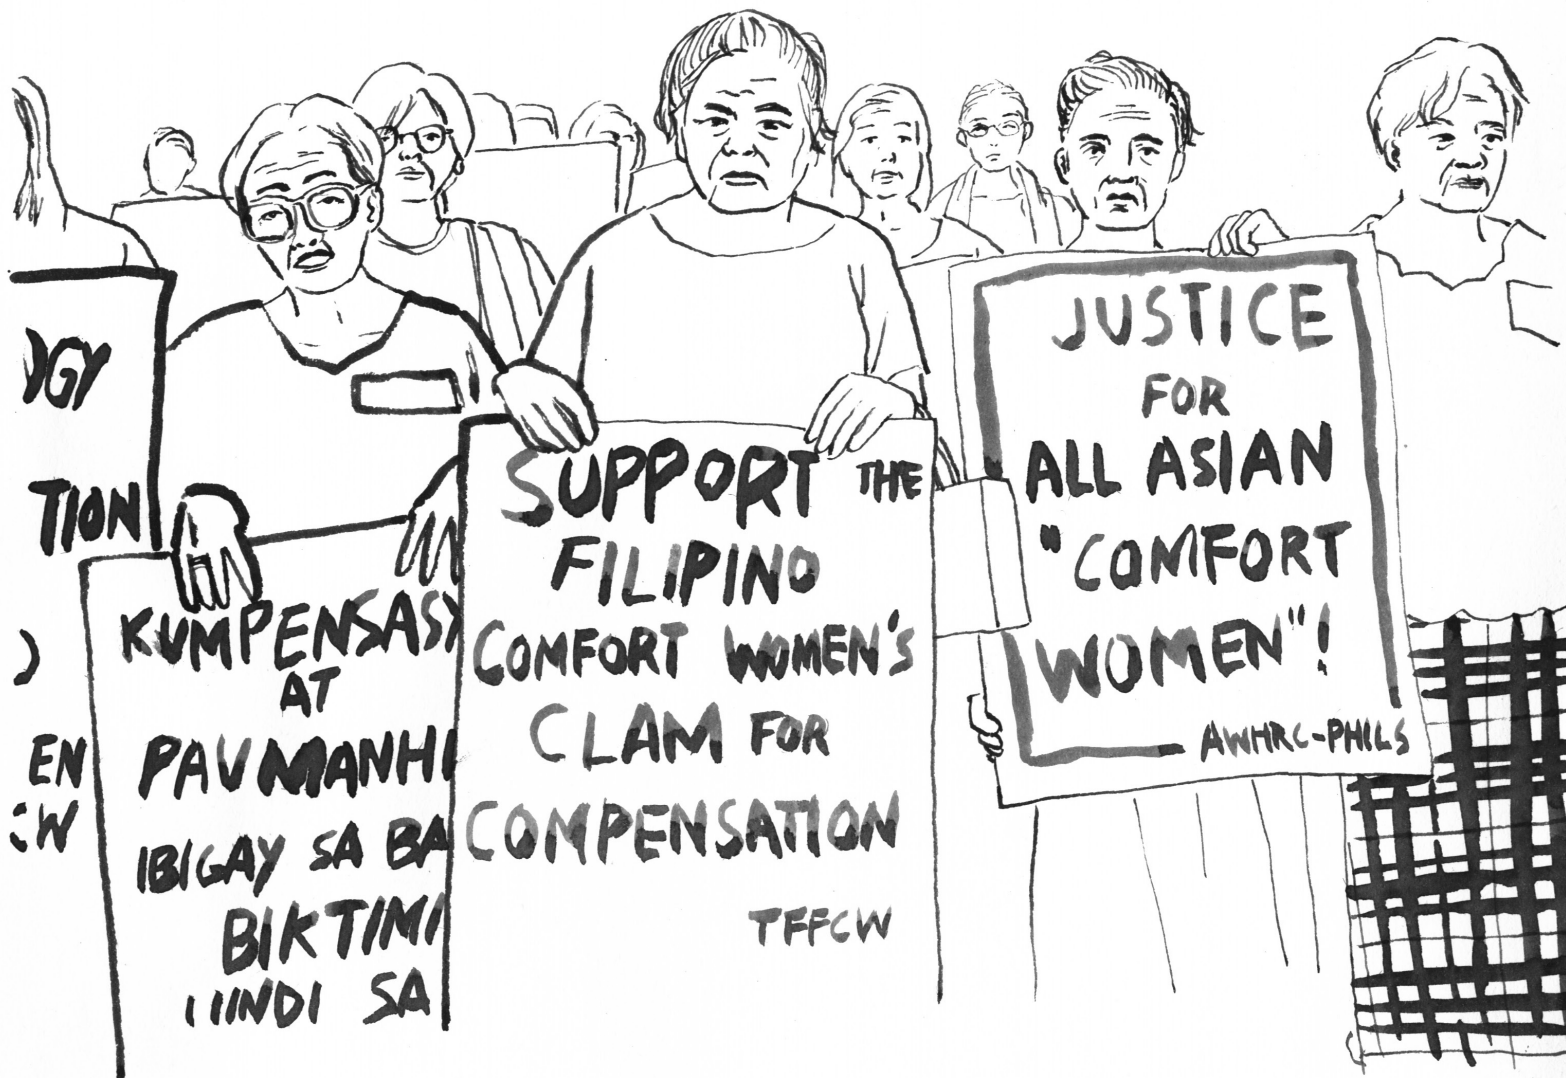 OGY
TION
)
EN
CW
KUMPENSASY
AT
PAUMANHI
IBIGAY SA BA
BIKTIMI
HINDI SA
SUPPORT THE
FILIPINO
COMFORT WOMEN'S
CLAM FOR
COMPENSATION
TFFCW
JUSTICE
FOR
ALL ASIAN
"COMFORT
WOMEN"!
AWHRC-PHILS